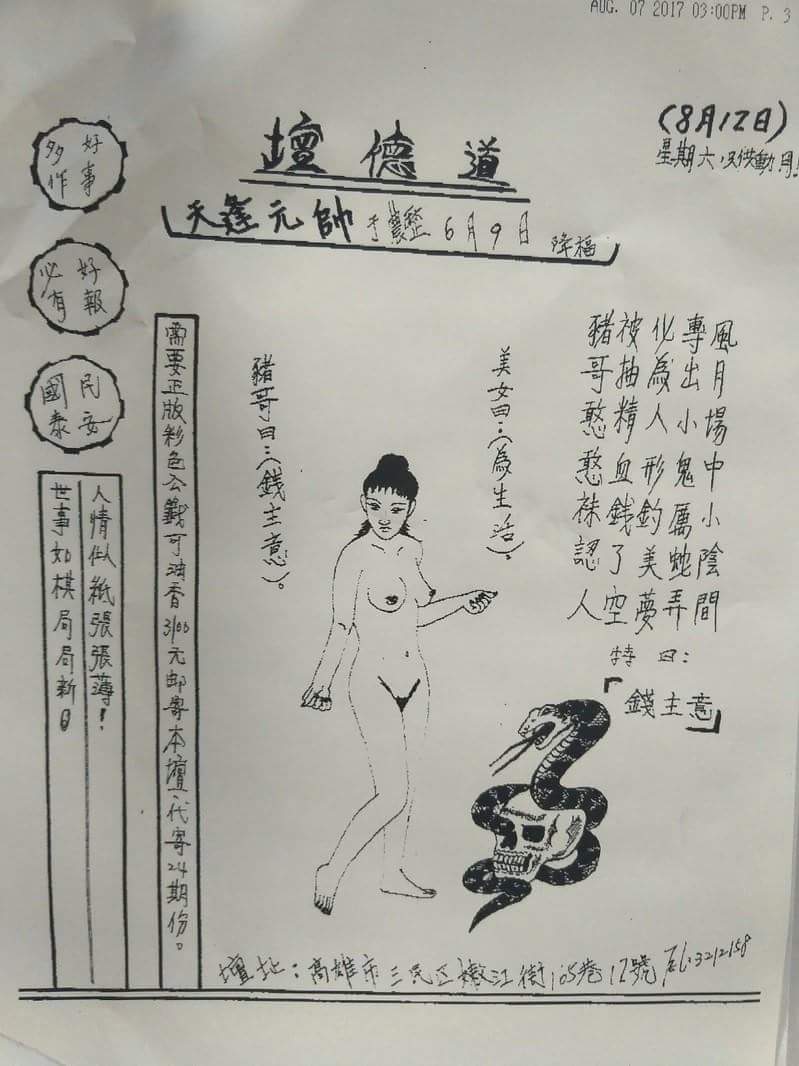 AUG. 07 2017 03:00PM P. 3
(8月12日)
星期六
道德壇
天蓬元帥
6月9日
降福
好事
多作
好報
必有
民安
國泰
風月場中小陰間
專出小鬼厲蛇弄
化為人形釣美夢
被抽精血錢了空
豬哥憨憨袜認人
特曰：
「錢主意」
美女曰：（為生活）。
豬哥曰：（錢主意）。
需要正版彩色公籤可油香3100元郵寄本壇．代寄24期份。
人情似紙張張薄！
世事如棋局局新
壇址：高雄市三民區嫩江街105巷12號
3212158